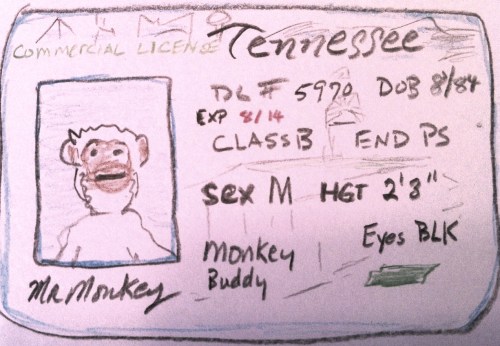 COMMERCIAL LICENSE
Tennessee
DL # 5970 DOB 8/84
EXP 8/14
CLASS B END PS
Sex M HGT 2'3"
Eyes BLK
Monkey
Buddy
Mr Monkey